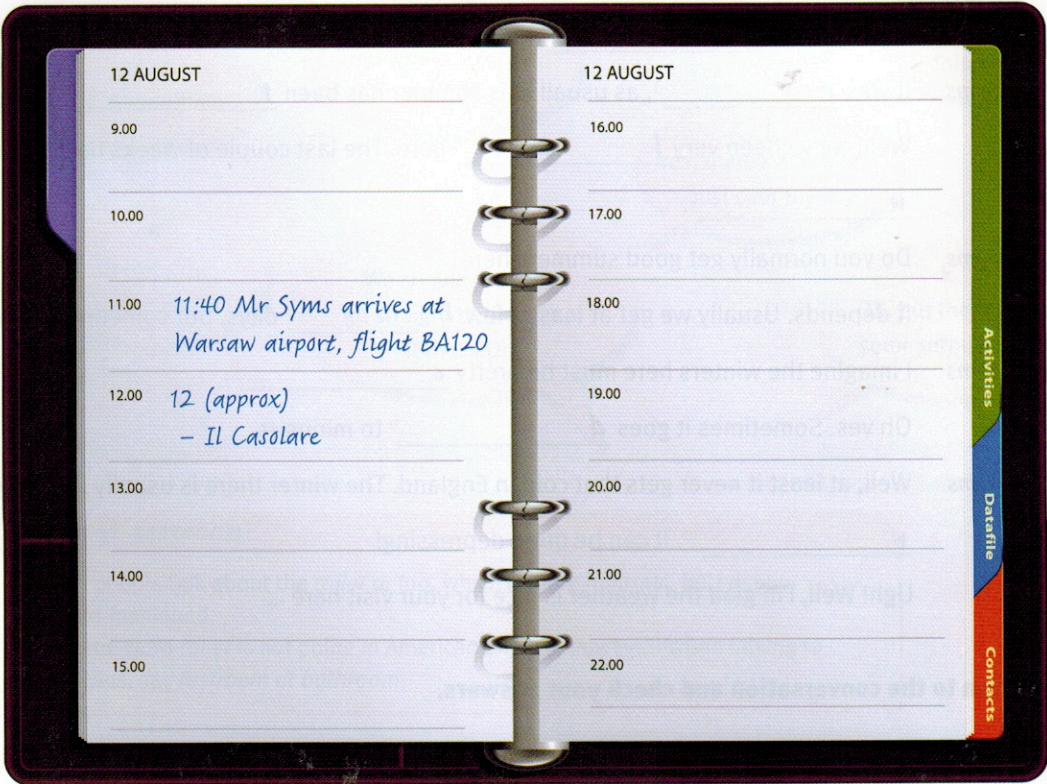 12 AUGUST
9.00
10.00
11.00 11:40 Mr Syms arrives at
Warsaw airport, flight BA120
12.00 12 (approx)
– Il Casolare
13.00
14.00
15.00
12 AUGUST
16.00
17.00
18.00
19.00
20.00
21.00
22.00
Activities
Datafile
Contacts